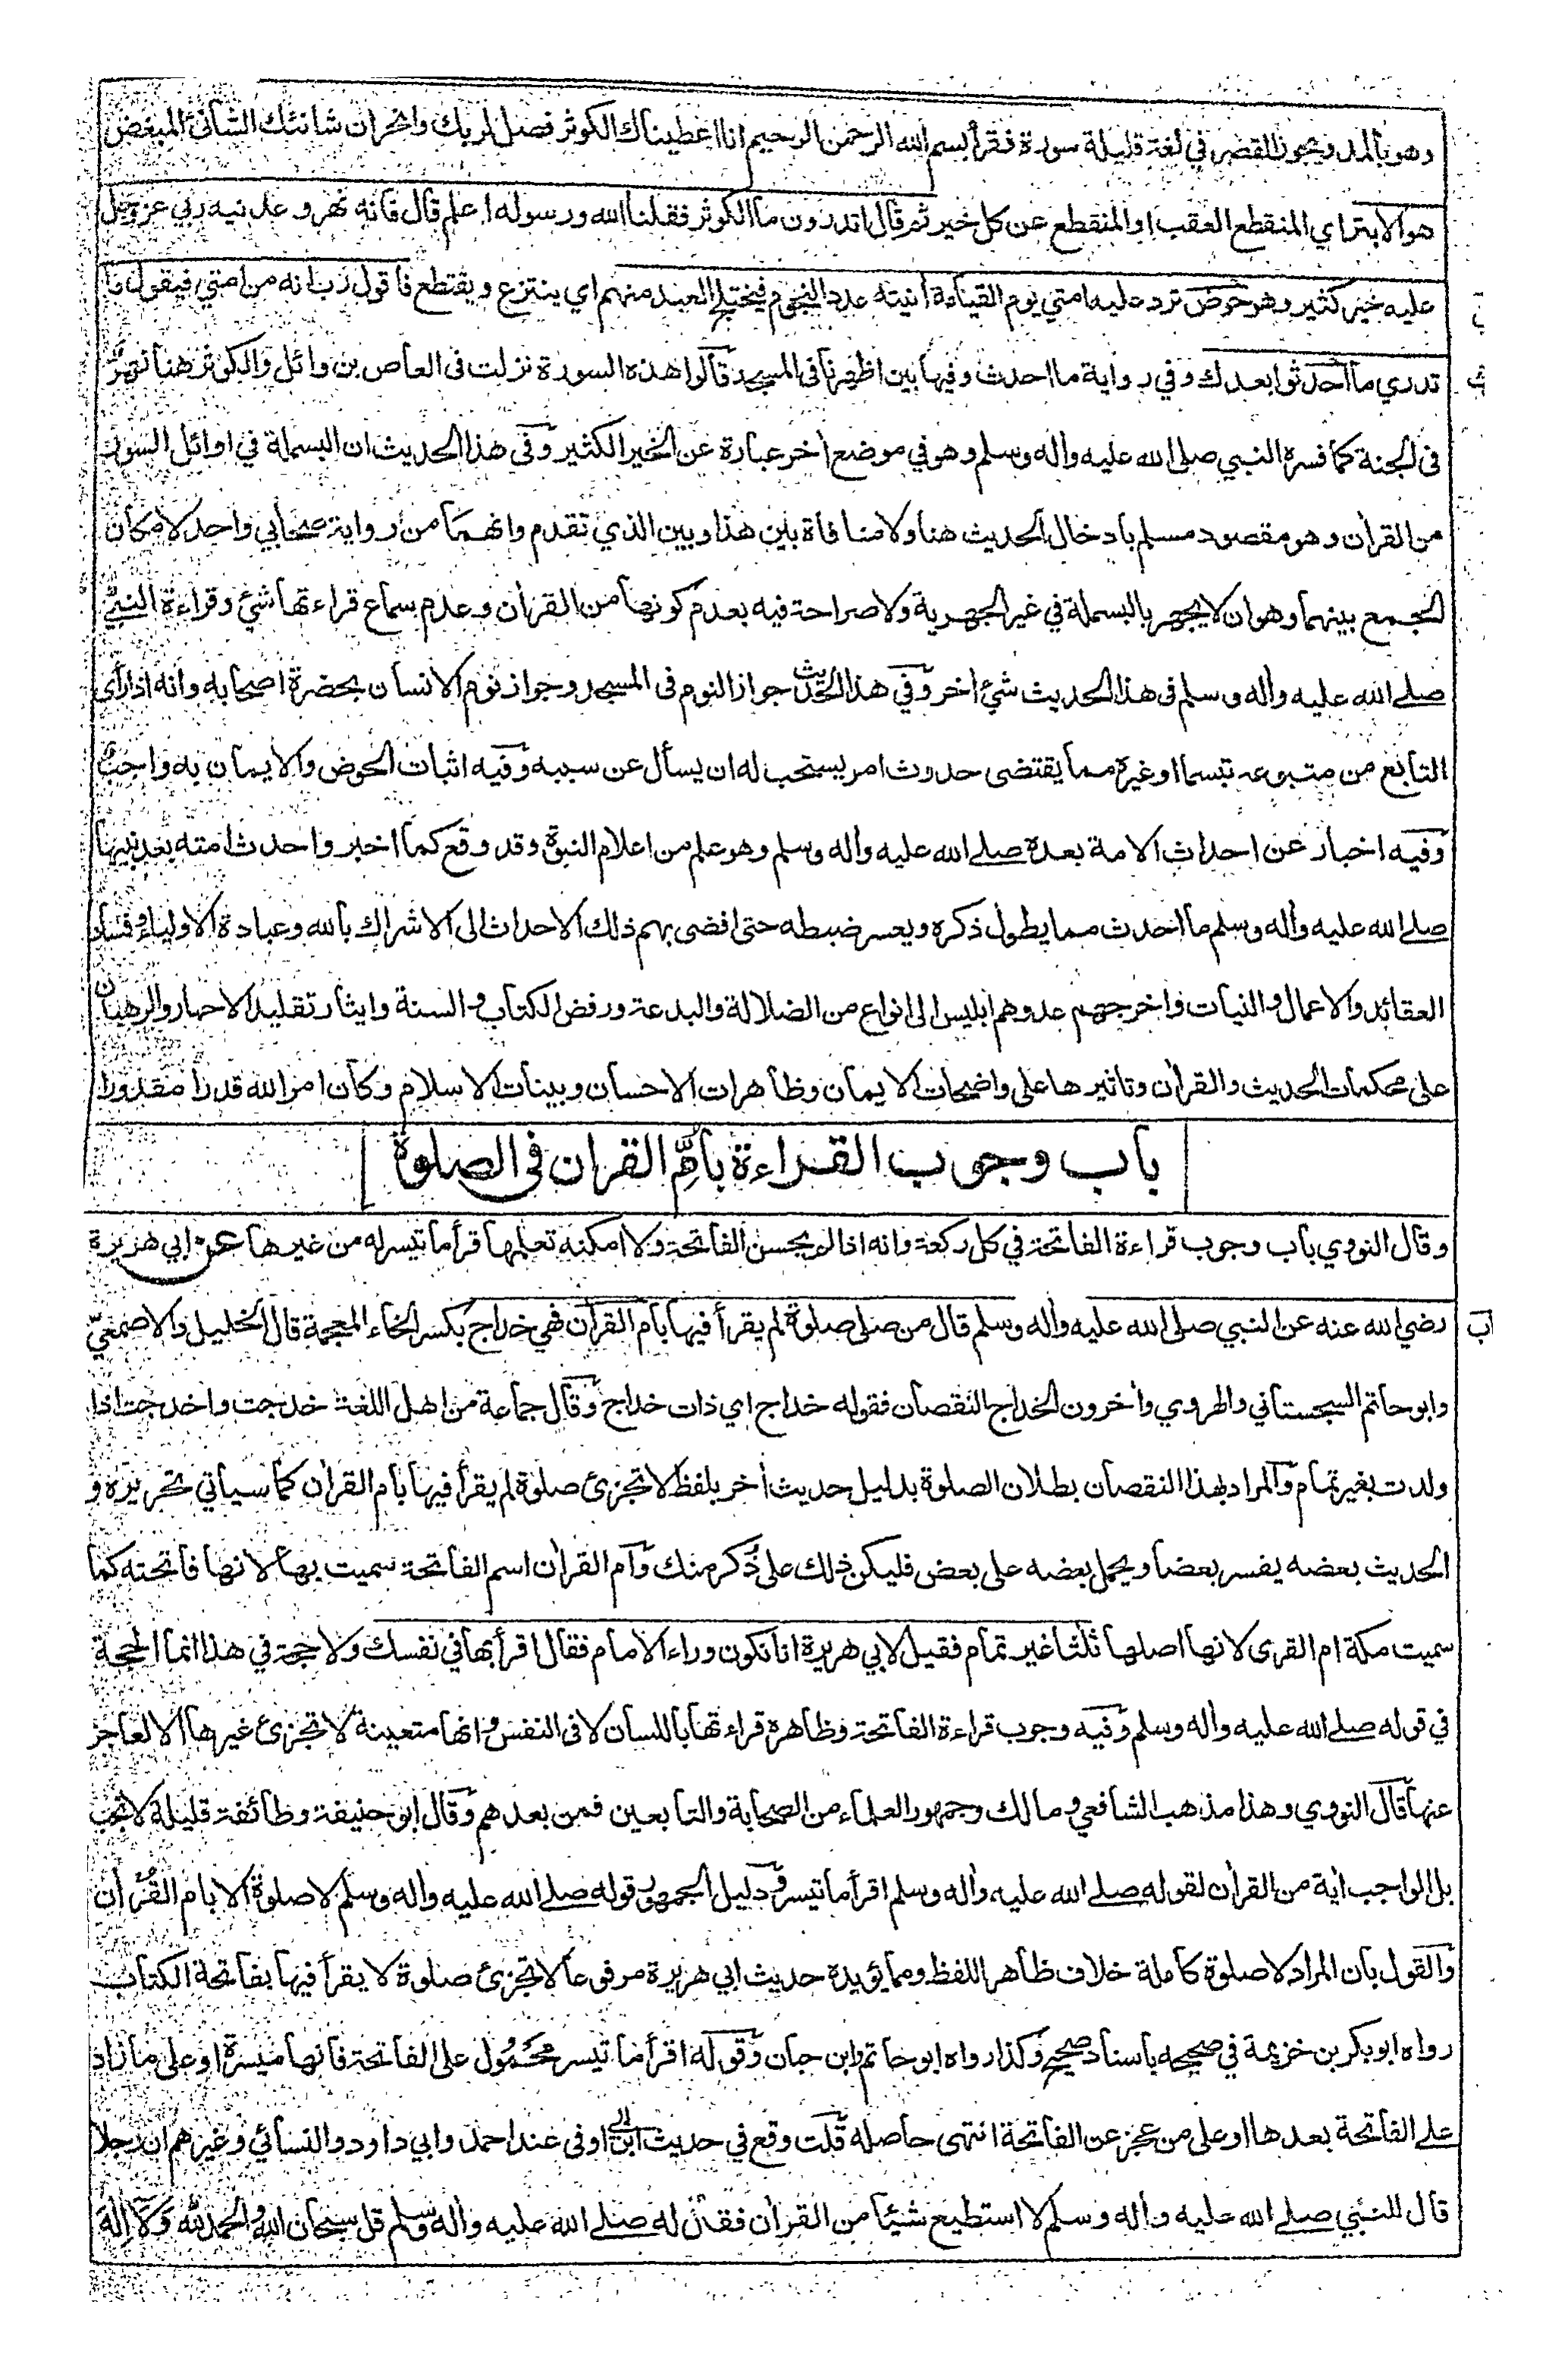 وهو بالمد ويجوز القصر في لغة قليلة سورة فقرأ بسم الله الرحمن الرحيم انا اعطيناك الكوثر فصل لربك وانحران شانئك الشانئ المبغض
هو الابتر اي المنقطع العقب او المنقطع عن كل خير ثم قال اتدرون ما الكوثر فقلنا الله ورسوله اعلم قال فانه نهر وعدنيه ربي عز وجل
عليه خير كثير وهو حوض ترد عليه امتي يوم القيامة أنيته عدد النجوم فيختلج العبد منهم اي ينتزع ويقتطع فاقول رب انه من امتي فيقول ما
تدري ما احدثوا بعدك وفي رواية ما احدث وفيها بين اظهرنا فى المسجد قالوا هذه السورة نزلت فى العاص بن وائل والكوثر هنا نهر
فى الجنة كما فسره النبي صلى الله عليه واله وسلم وهو في موضع أخر عبارة عن الخير الكثير وفى هذا الحديث ان البسملة في اوائل السور
من القرأن وهو مقصود مسلم بادخال الحديث هنا ولا منافاة بين هذا وبين الذي تقدم وانهما من رواية صحابي واحد لامكان
الجمع بينهما وهو ان لا يجهر بالبسملة في غير الجهرية ولا صراحة فيه بعدم كونها من القرأن وعدم سماع قراءتها شئ وقراءة النبي
صلے الله عليه واله وسلم فى هذا الحديث شئ اخر وفي هذا الحديث جواز النوم فى المسجد وجواز نوم الانسان بحضرة اصحابه وانه اذا رأى
التابع من متبوعه تبسما او غيره مما يقتضى حدوث امر يستحب له ان يسأل عن سببه وفيه اثبات الحوض والايمان به واجب
وفيه اخبار عن احداث الامة بعده صلے الله عليه واله وسلم وهو علم من اعلام النبوة وقد وقع كما اخبر واحدث امته بعد نبيها
صلے الله عليه واله وسلم ما احدث مما يطول ذكره ويعسر ضبطه حتى افضى بهم ذلك الاحداث الى الاشراك بالله وعبادة الاولياء وفساد
العقائد والاعمال والنيات واخرجهم عدوهم ابليس الى انواع من الضلالة والبدعة ورفض الكتاب والسنة وايثار تقليد الاحبار والرهبان
على محكمات الحديث والقرأن وتاثيرها على واضحات الايمان وظاهرات الاحسان وبينات الاسلام وكان امر الله قدرا مقدورا
باب وجوب القراءة بام القرأن فى الصلوة
وقال النووي باب وجوب قراءة الفاتحة في كل ركعة وانه اذا لم يحسن الفاتحة ولا امكنه تعلمها قرأ ما تيسر له من غيرها عن ابي هريرة
رضي الله عنه عن النبي صلى الله عليه واله وسلم قال من صلى صلوة لم يقرأ فيها بام القرأن فهي خداج بكسر الخاء المعجمة قال الخليل والاصمعي
وابو حاتم السجستاني والهروي وأخرون الخداج النقصان فقوله خداج اي ذات خداج وقال جماعة من اهل اللغة خدجت واخدجت اذا
ولدت بغير تمام والمراد بهذا النقصان بطلان الصلوة بدليل حديث أخر بلفظ لا تجزئ صلوة لم يقرأ فيها بام القرأن كما سيأتي تحريره و
الحديث بعضه يفسر بعضا ويحمل بعضه على بعض فليكن ذلك على ذكر منك وام القرأن اسم الفاتحة سميت بها لانها فاتحته كما
سميت مكة ام القرى لانها اصلها ثلثا غير تمام فقيل لابي هريرة انا نكون وراء الامام فقال اقرأ بها في نفسك ولا حجة في هذا انما الحجة
في قوله صلے الله عليه واله وسلم وفيه وجوب قراءة الفاتحة وظاهره قراءتها باللسان لا فى النفس وانها متعينة لا تجزئ غيرها الا لعاجز
عنها قال النووي وهذا مذهب الشافعي ومالك وجمهور العلماء من الصحابة والتابعين فمن بعدهم وقال ابو حنيفة وطائفة قليلة لا تجب
بل الواجب أية من القرأن لقوله صلے الله عليه واله وسلم اقرأ ما تيسر ودليل الجمهور قوله صلے الله عليه واله وسلم لا صلوة الا بام القرأن
والقول بان المراد لا صلوة كاملة خلاف ظاهر اللفظ ومما يؤيده حديث ابي هريرة مرفوعا لا تجزئ صلوة لا يقرأ فيها بفاتحة الكتاب
رواه ابو بكر بن خزيمة في صحيحه باسناد صحيح وكذا رواه ابو حاتم وابن حبان وقوله اقرأ ما تيسر محمول على الفاتحة فانها ميسرة او على ما زاد
علے الفاتحة بعدها او على من عجز عن الفاتحة انتهى حاصله قلت وقع في حديث ابن ابي اوفى عند احمد وابي داود والنسائي وغيرهم ان رجلا
قال للنبي صلے الله عليه واله وسلم لا استطيع شيئا من القرأن فقال له صلے الله عليه واله وسلم قل سبحان الله والحمد لله ولا اله